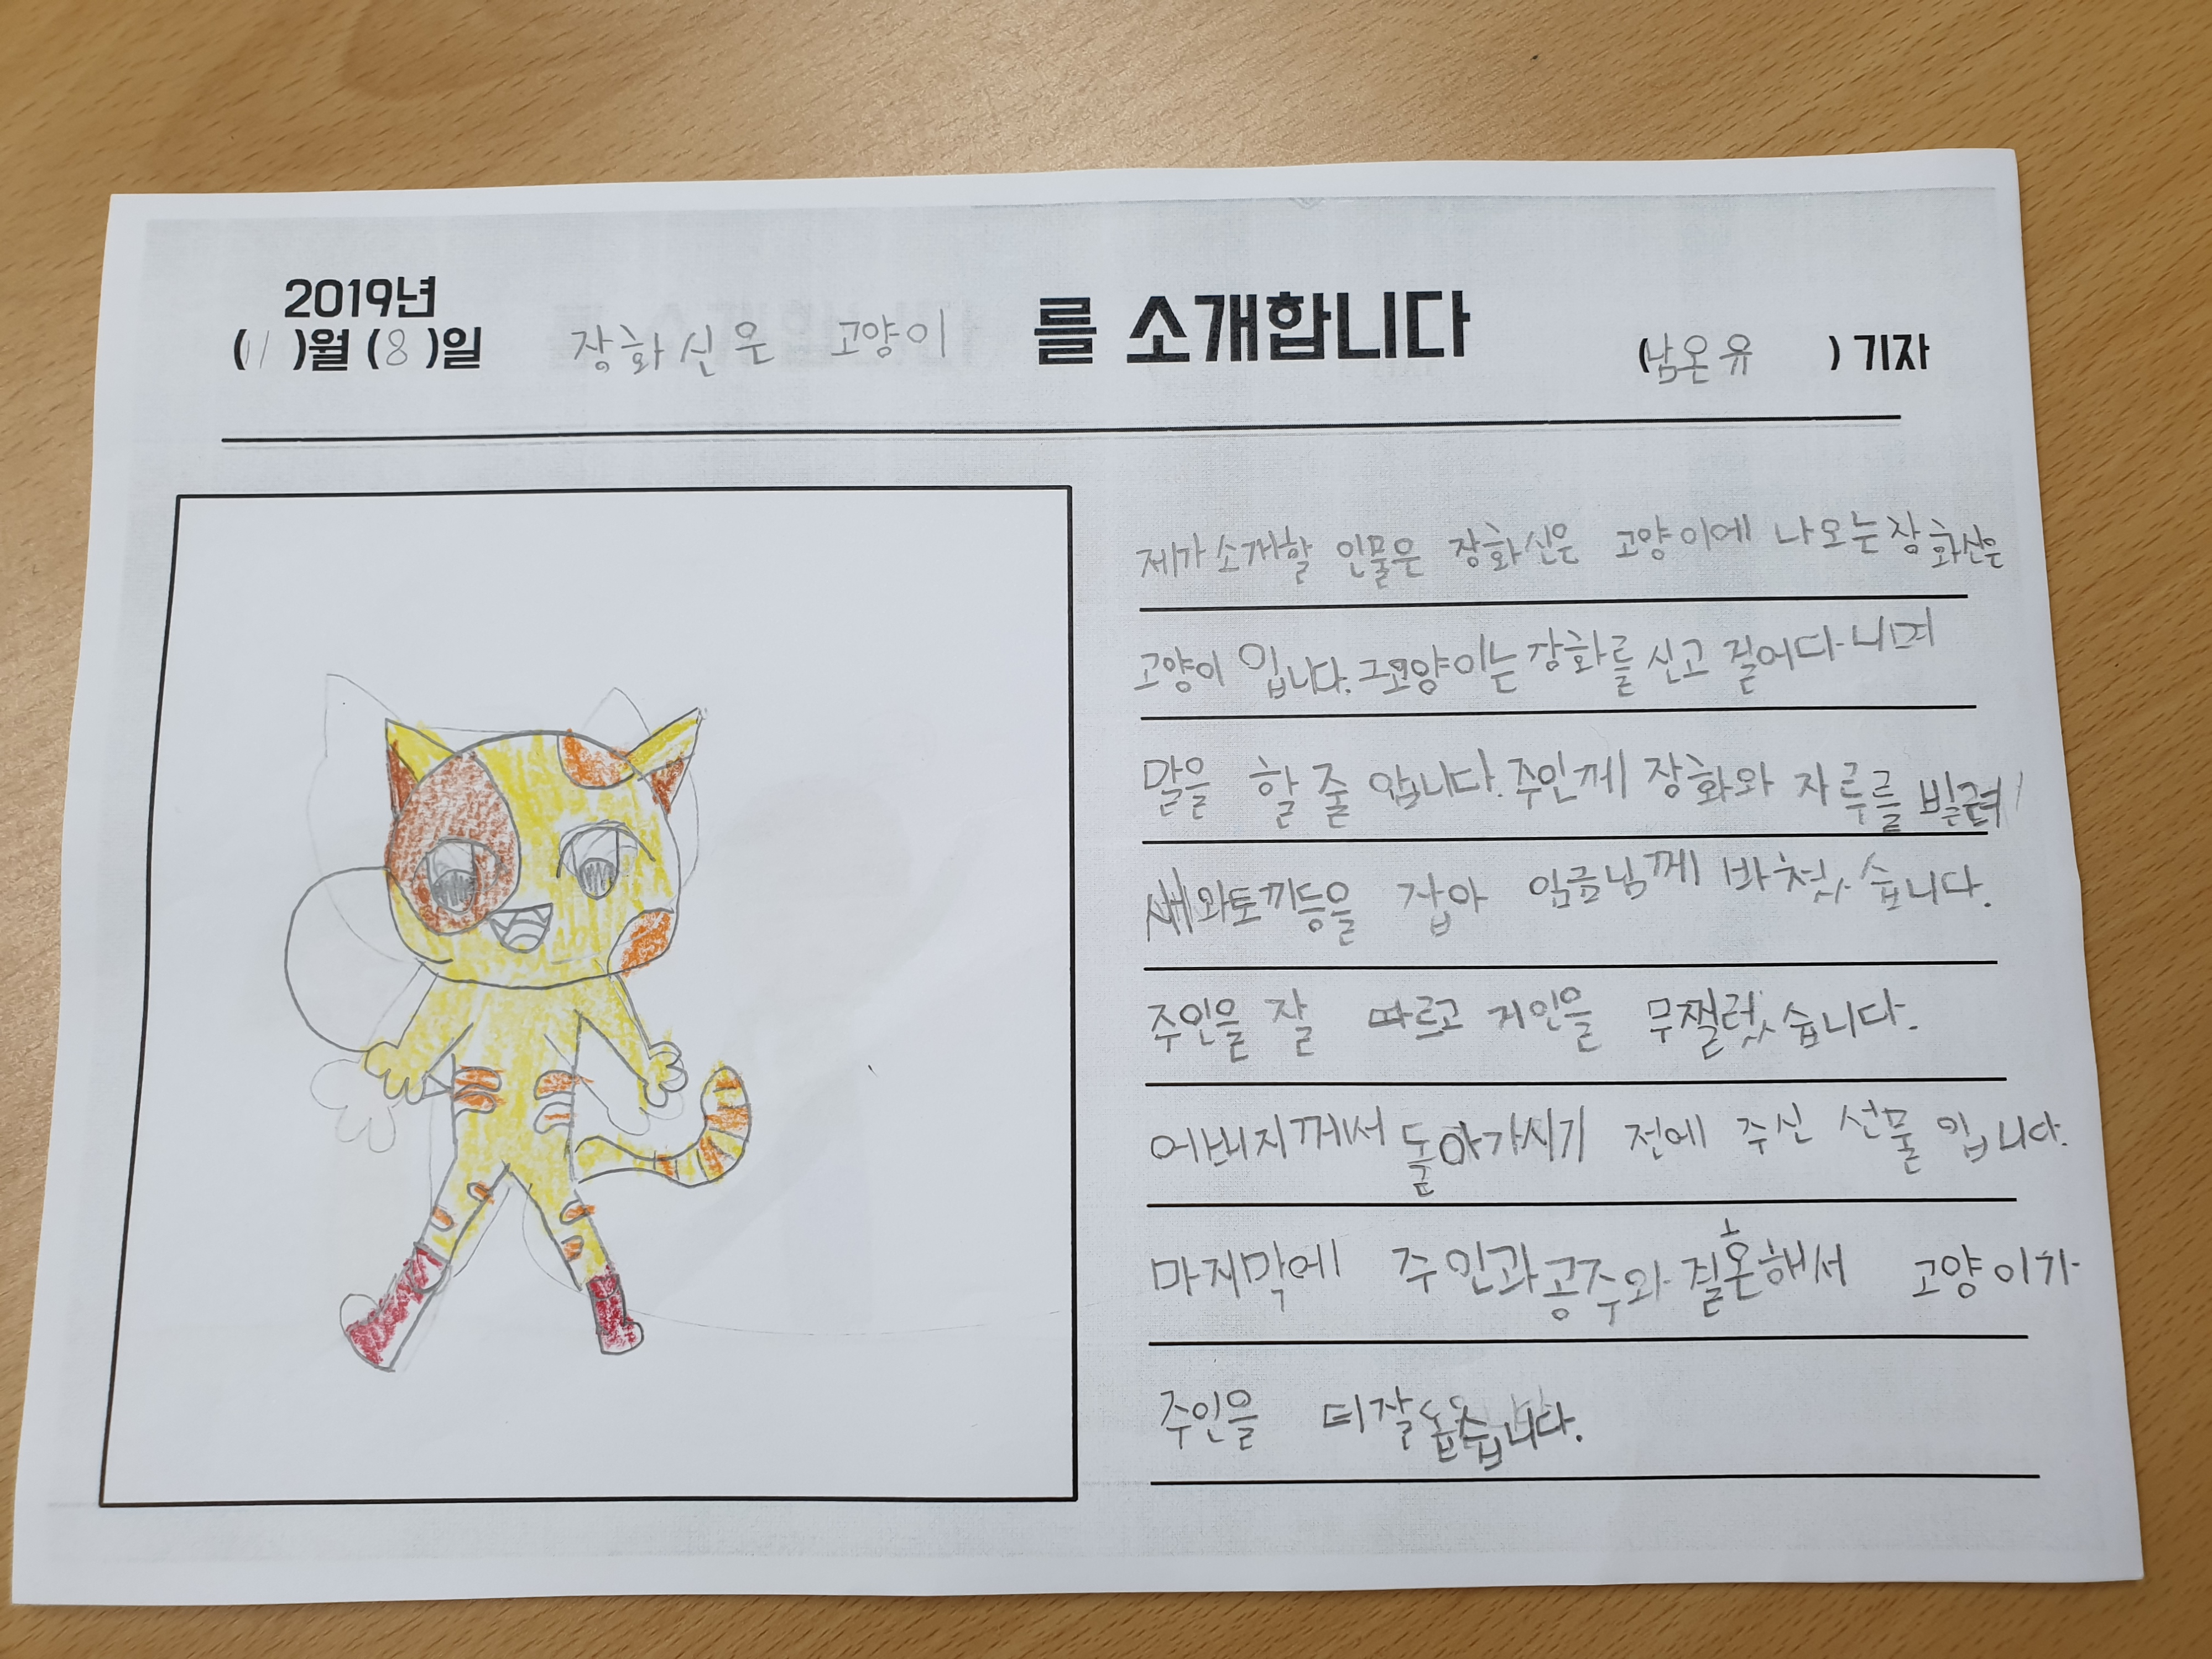 2019년
(11)월 (8)일 장화신은 고양이 를 소개합니다 (남온유) 기자
제가 소개할 인물은 장화신은 고양이에 나오는 장화신은
고양이 입니다. 그고양이는 장화를 신고 걸어다니며
말을 할 줄 압니다. 주인께 장화와 자루를 빌려
새와토끼등을 잡아 임금님께 바쳤습니다.
주인을 잘 따르고 거인을 무찔렀습니다.
아버지께서 돌아가시기 전에 주신 선물 입니다.
마지막에 주인과공주와 결혼해서 고양이가
주인을 더잘 돕습니다.